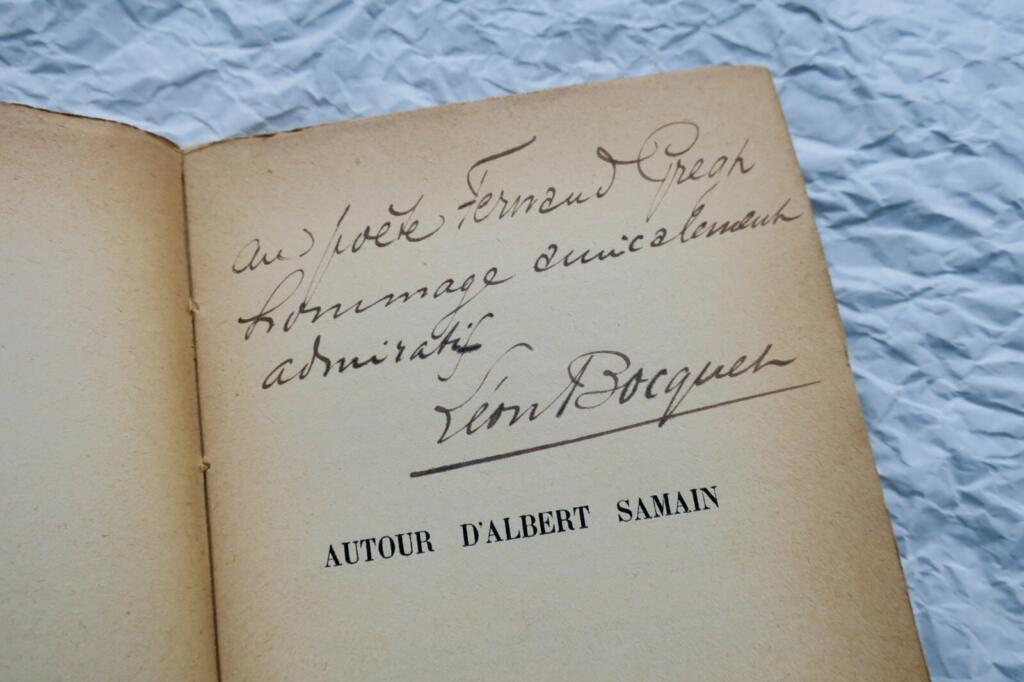 au poète Fernand Gregh
hommage amicalement
admiratif
Léon Bocquet
AUTOUR D'ALBERT SAMAIN